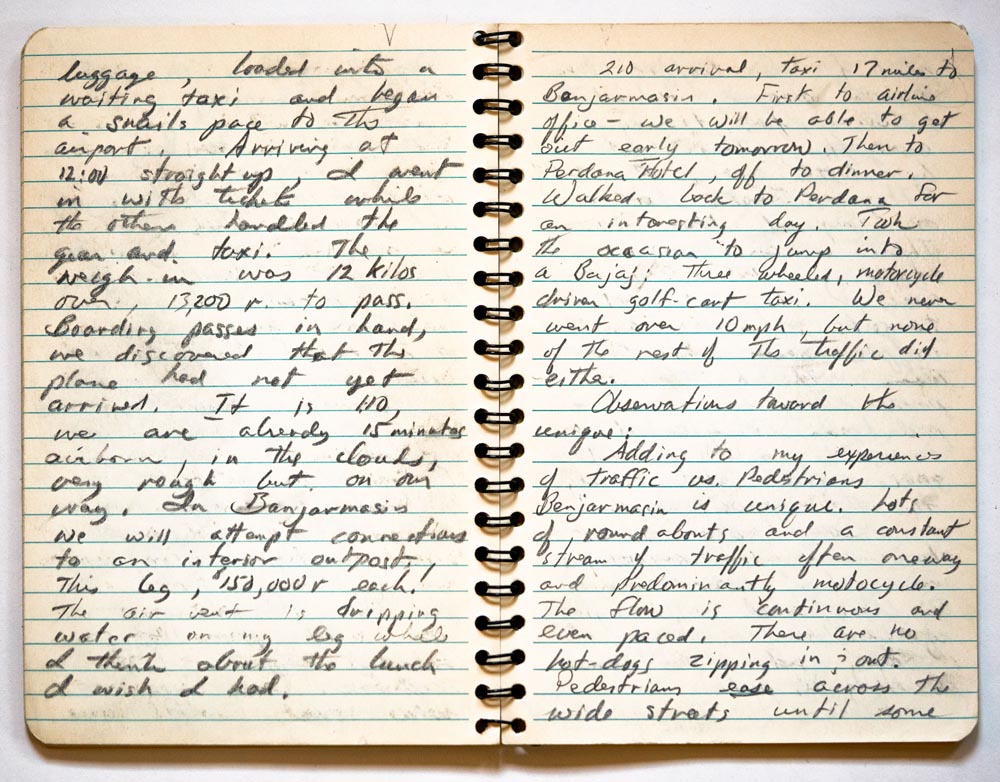 luggage, loaded into a
waiting taxi and began
a snails pace to the
airport. Arriving at
12:00 straight up, I went
in with tickets while
the others handled the
gear and taxi. The
weigh-in was 12 kilos
over, 13,200 r to pass.
Boarding passes in hand,
we discovered that the
plane had not yet
arrived. It is 110,
we are already 15 minutes
airborn, in the clouds,
very rough but on our
way. In Banjarmasin
we will attempt connections
to an interior outpost.
This leg, 150,000 r each.
The air vent is dripping
water on my leg while
I think about the lunch
I wish I had.
210 arrival, taxi 17 miles to
Banjarmasin. First to airline
office - we will be able to get
out early tomorrow. Then to
Perdana Hotel, off to dinner.
Walked back to Perdana for
an interesting day. Took
the occasion to jump into
a Bajaj: Three wheeled, motorcycle
driven golf-cart taxi. We never
went over 10 mph, but none
of the rest of the traffic did
either.
Observations toward the
unique:
Adding to my experiences
of traffic vs. Pedestrians
Banjarmasin is unique. Lots
of roundabouts and a constant
stream of traffic often oneway
and predominantly motocycle.
The flow is continuous and
even paced. There are no
hot-dogs zipping in & out.
Pedestrians ease across the
wide streets until some